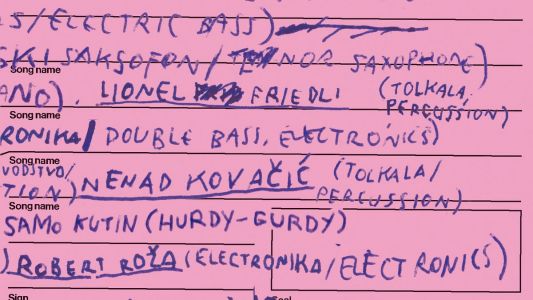 S/ELECTRIC BASS)
SKI SAKSOFON/TENOR SAXOPHONE)
Song name
ANO), LIONEL FRIEDLI (TOLKALA
PERCUSSION)
Song name
RONIKA/ DOUBLE BASS, ELECTRONICS)
Song name
VODSTVO/
TION) NENAD KOVAČIĆ (TOLKALA/
PERCUSSION)
Song name
SAMO KUTIN (HURDY-GURDY)
) ROBERT ROŽA (ELECTRONIKA/ELECTRONICS)
Sign